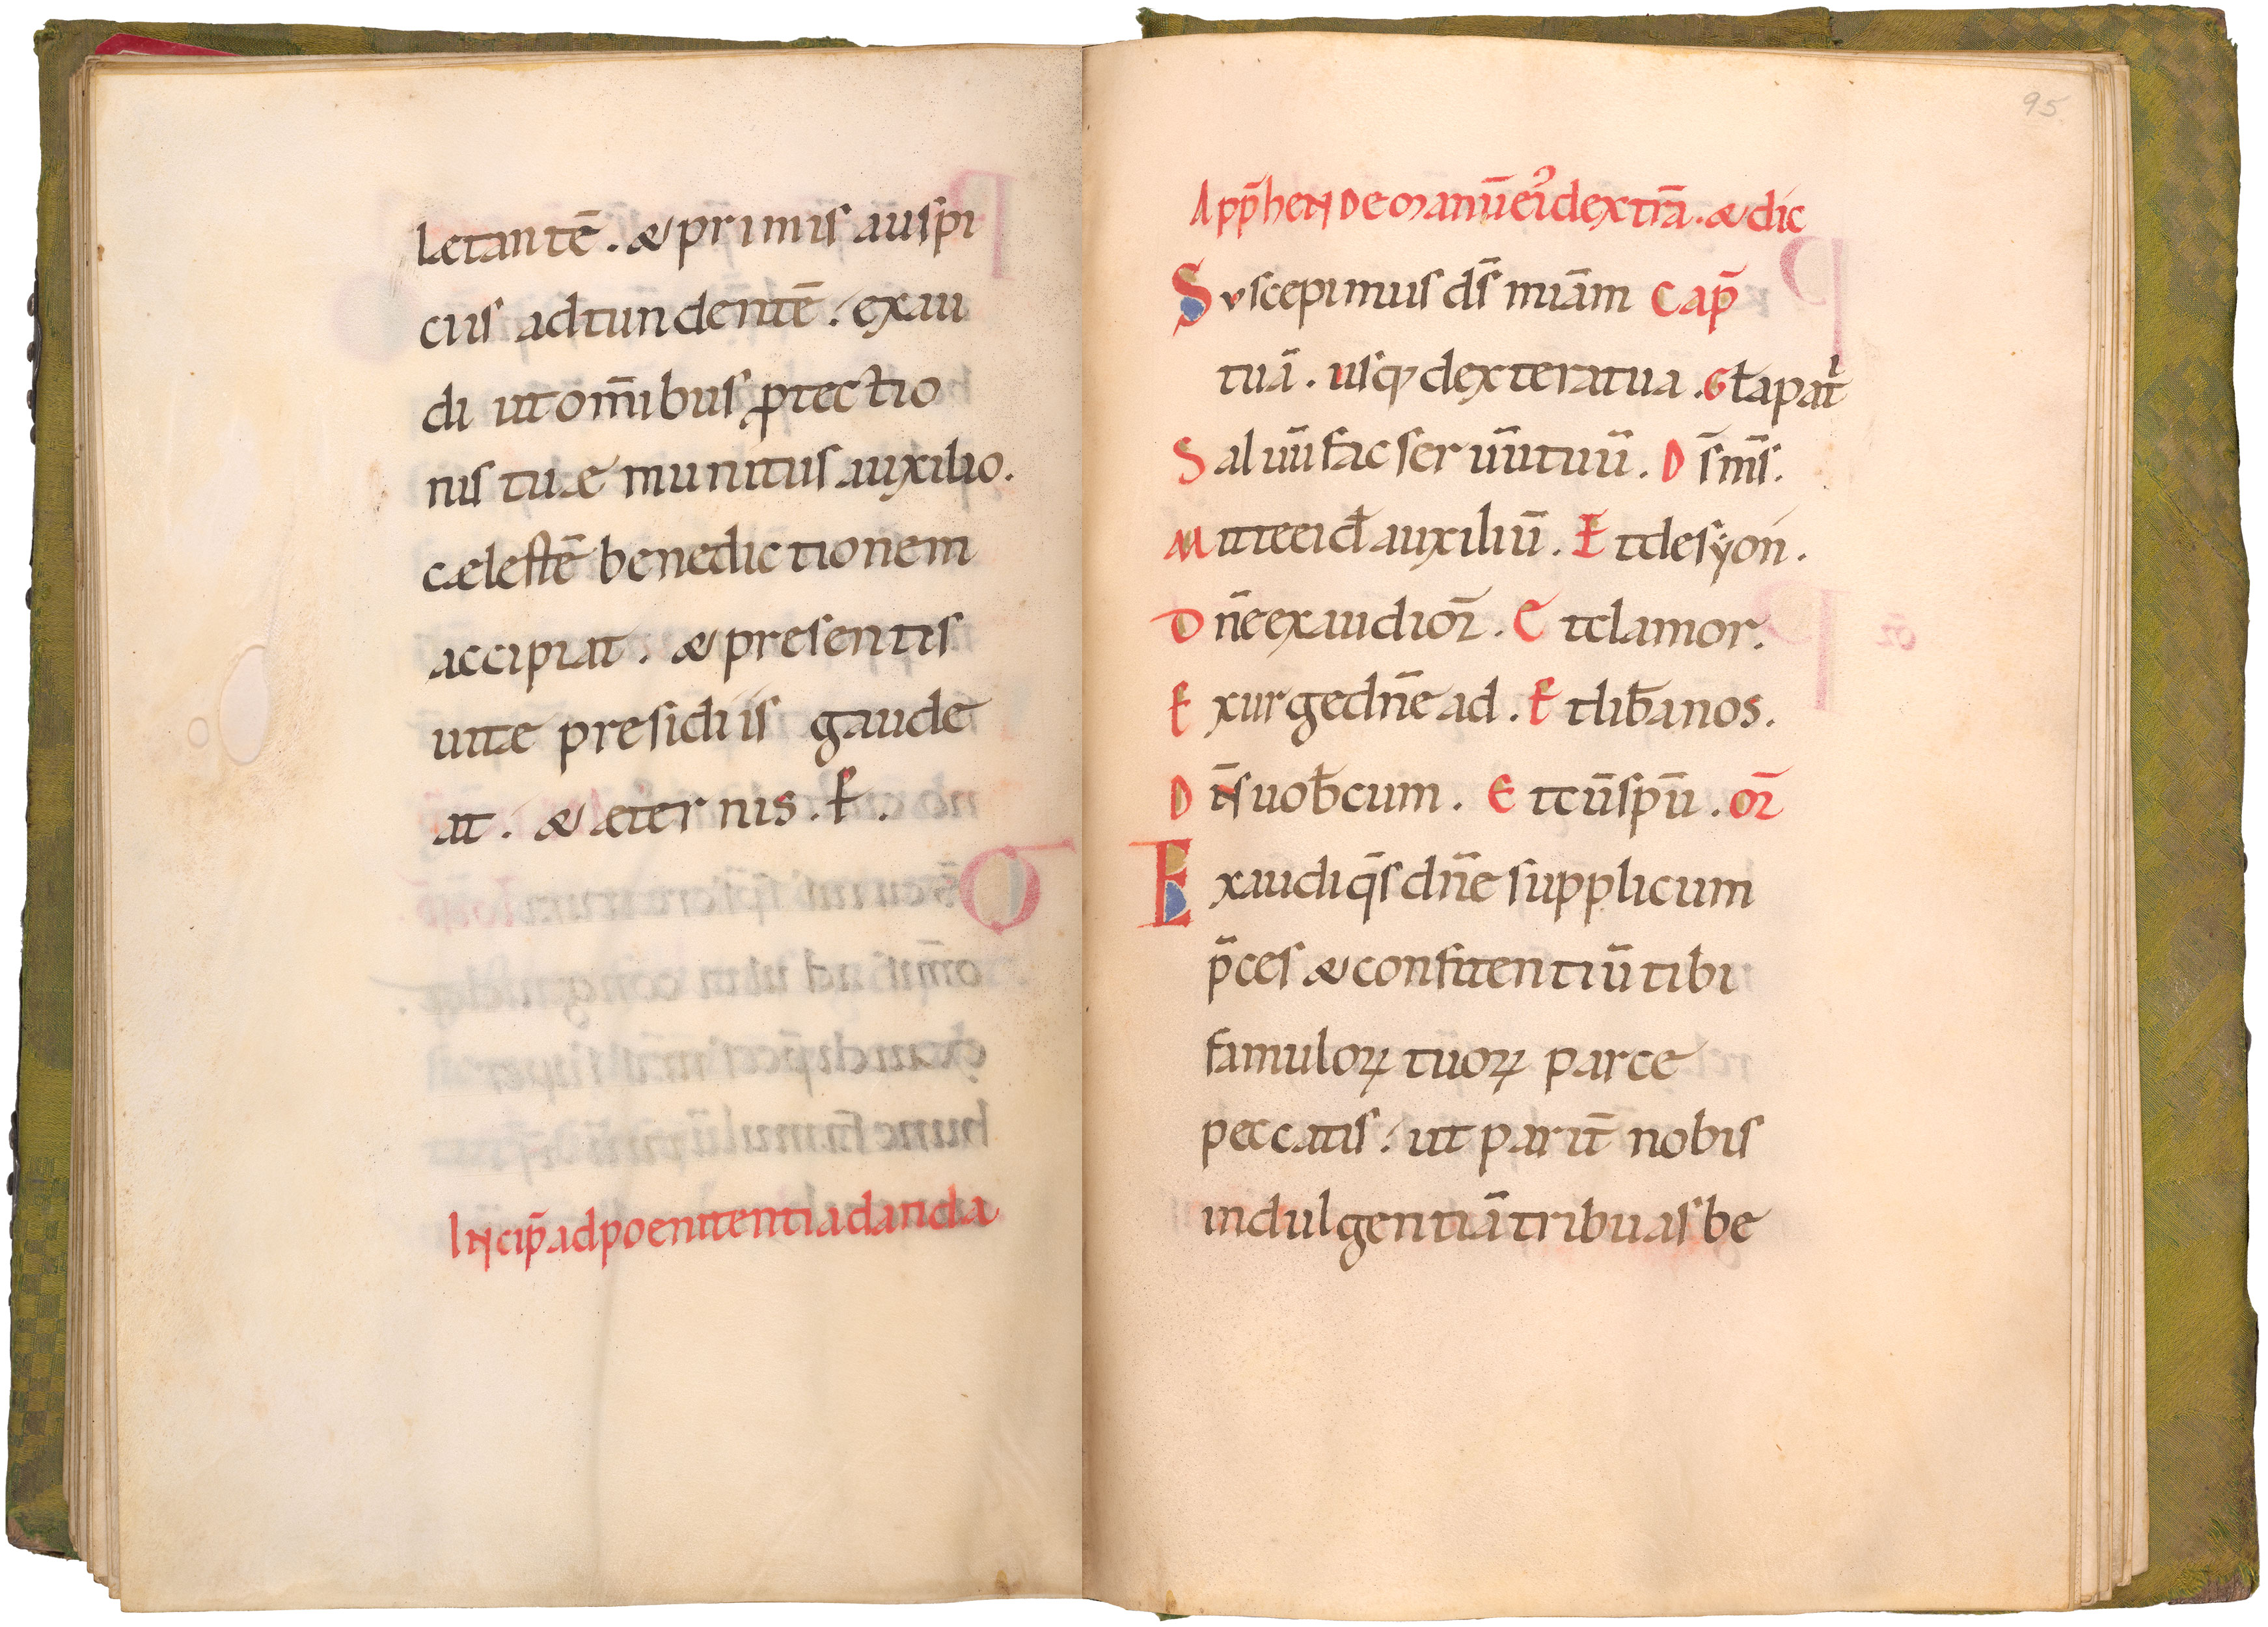 lætantē. & primis auspi
ciis adtundentē. exau
di ut om̄ibus ꝓtectio
nis tuæ munitus auxilio.
cælestē benedictionem
accipiat. & presentis
uitæ presidiis gaude
at. & æternis.
Incip̄ ad poenitentia danda
95
App̄hende manū ei᾽ dextrā. & dic
Suscepimus ds̄ miām Cap̄
tuā. usq; dextera tua. Gła pat̄
Saluū fac seruū tuū. Ds̄ ms̄.
Mitte ei đ auxiliū. Et de syon.
Dn̄e exaudi or̄. Et clamor.
Exurge dn̄e ad. Et lib̄a nos.
Dn̄s uob̄cum. Et cū sp̄u. or̄
Exaudi qs̄ dn̄e supplicum
p̄ces & confitentiū tibi
famuloꝝ tuoꝝ parce
peccatis. ut parit̄ nobis
indulgentiā tribuas be